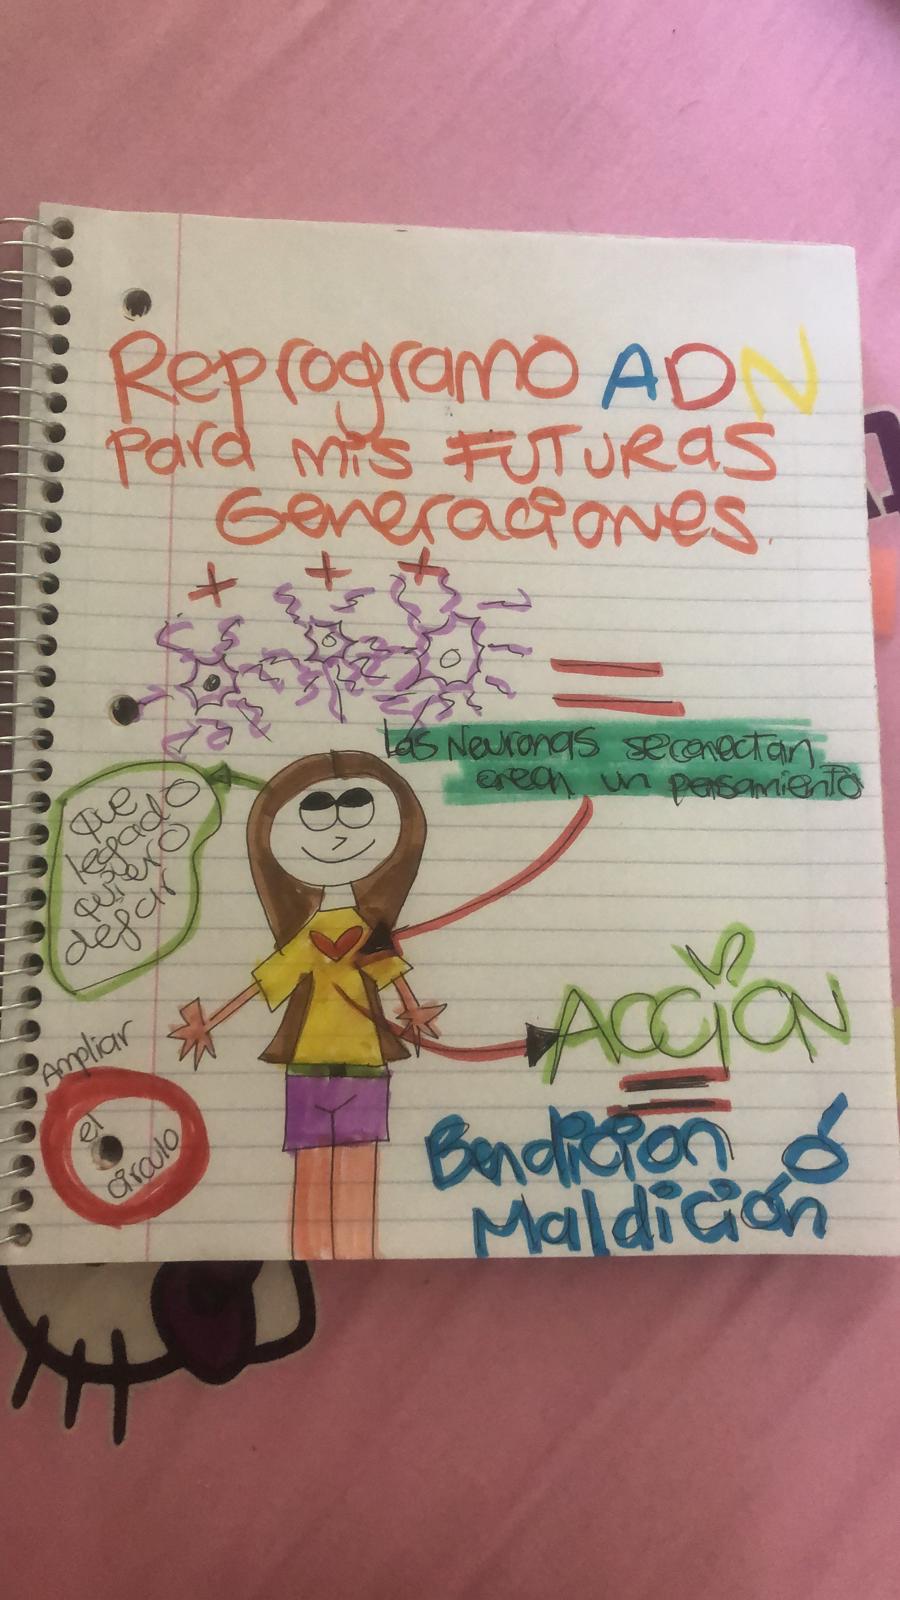 Reprogramo ADN
para mis FUTURAS
Generaciones.
Las Neuronas se conectan
crean un pensamiento
que
legado
quiero
dejar
Ampliar
el
circulo
ACCION
Bendicion ó
Maldición